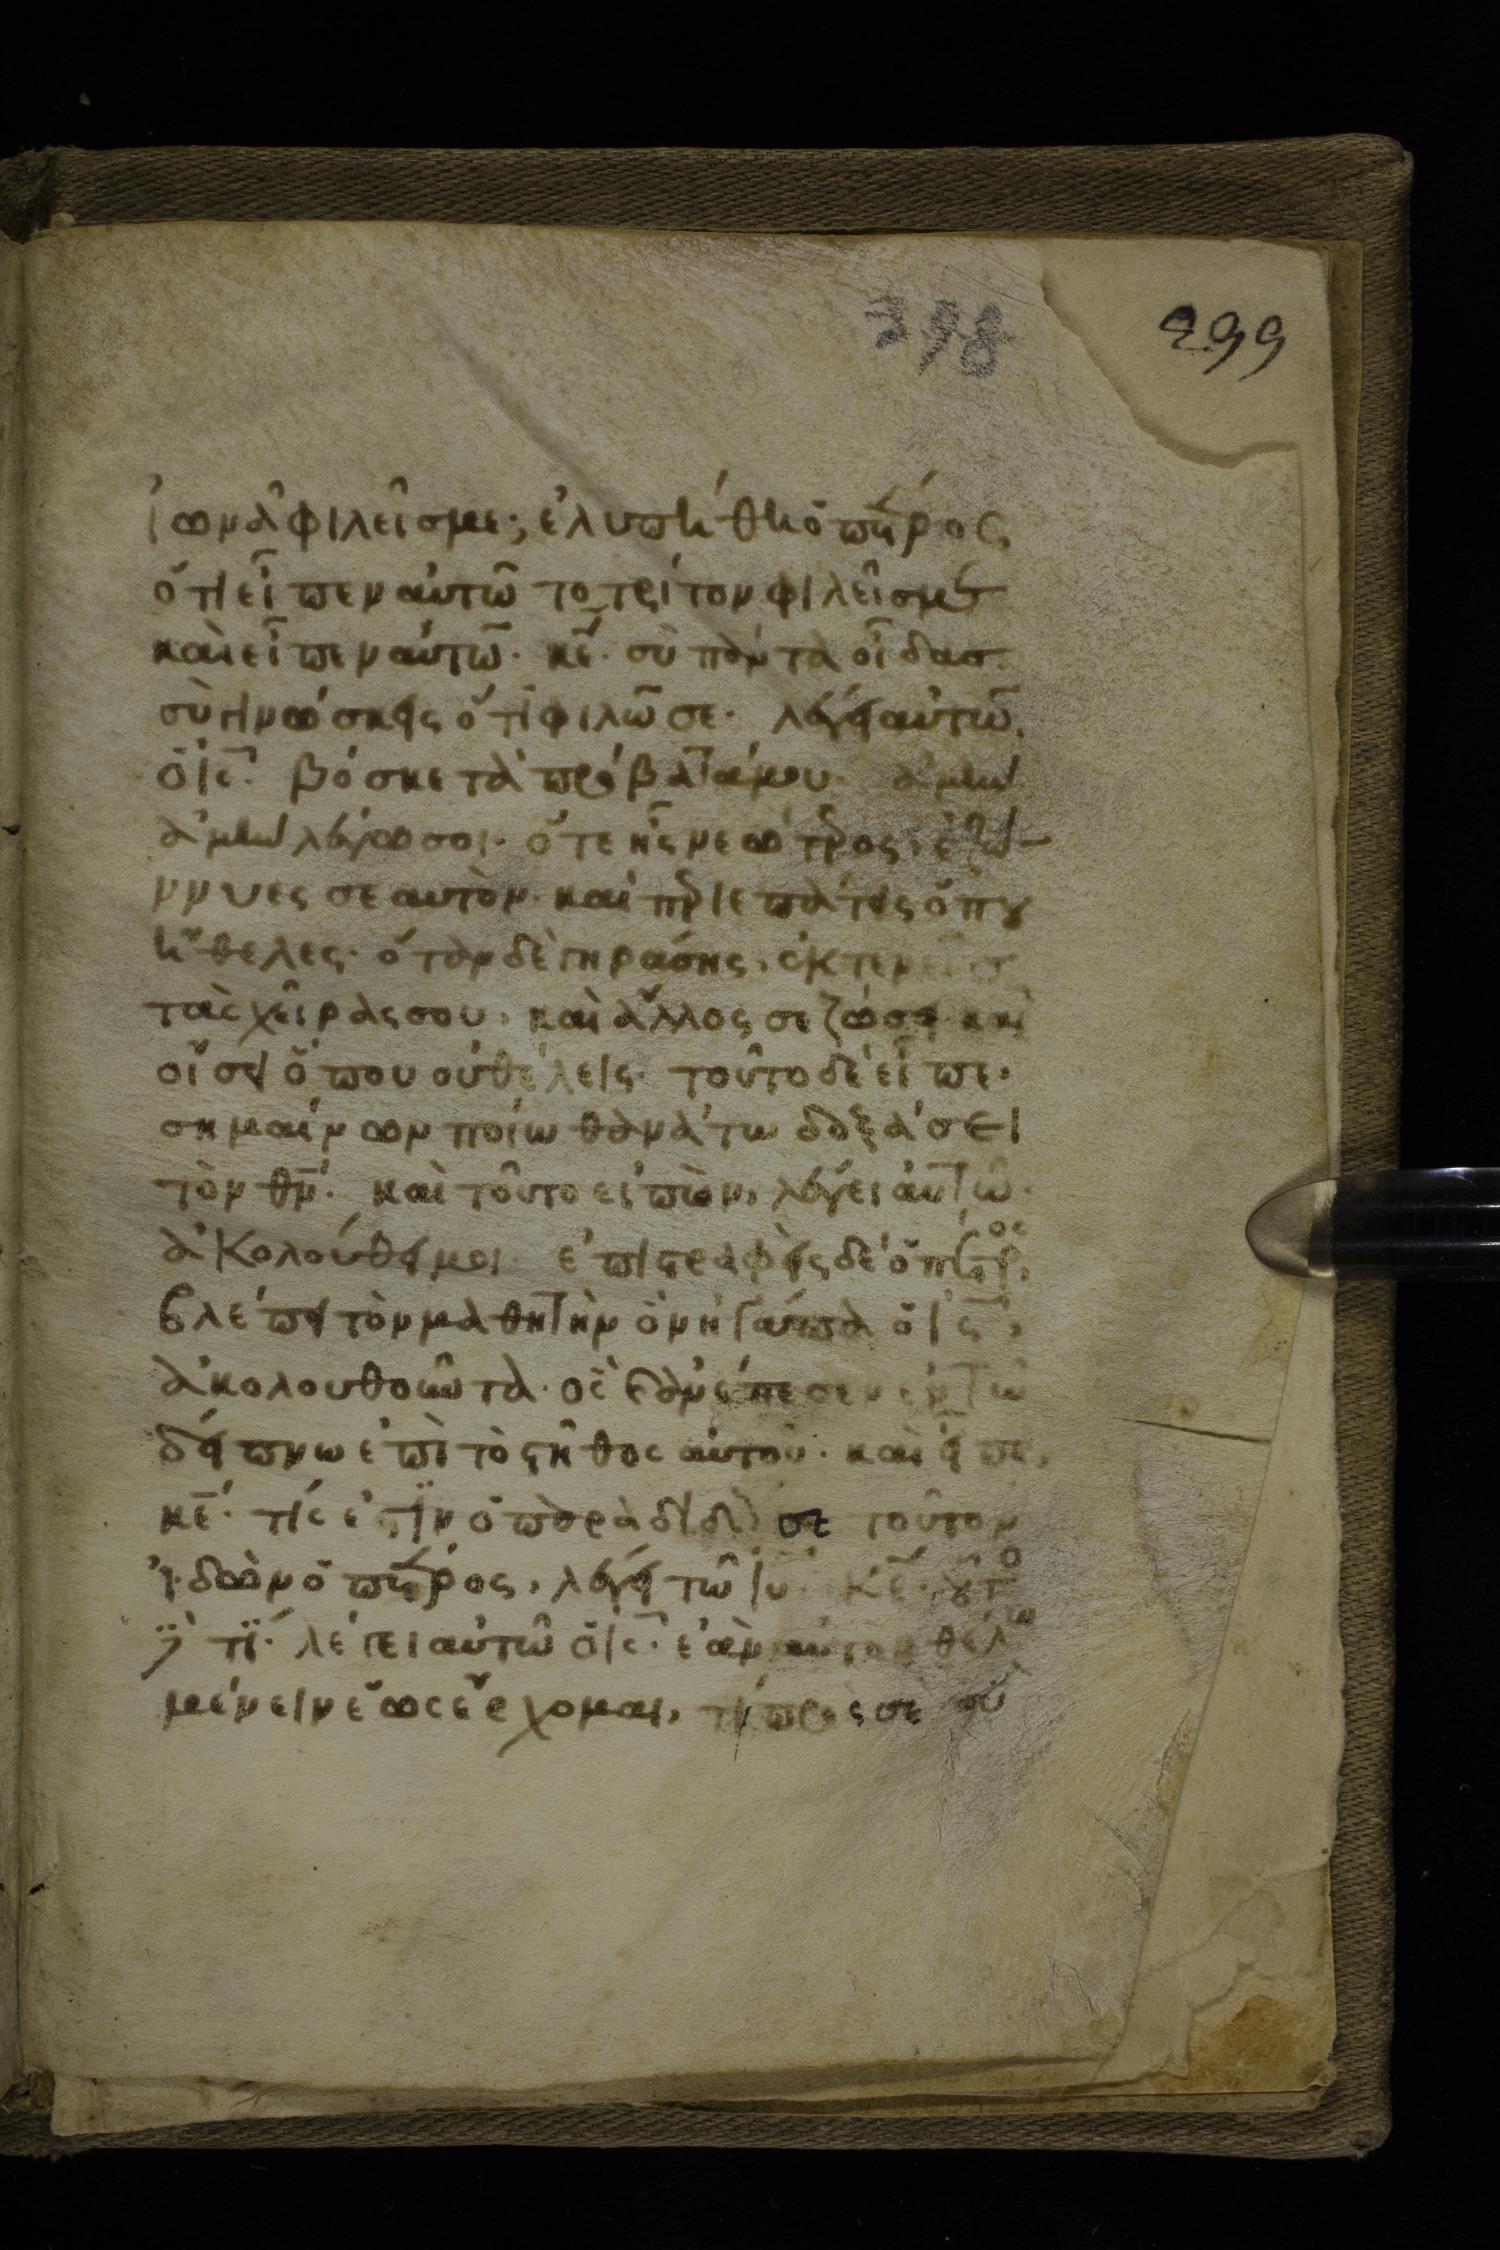 398
299
ἰωνᾶ φιλεῖς με; ἐλυπήθη ὁ πέτρος
ὅτι εἶπεν αὐτῶ το τρίτον φιλεῖς με
καὶ εἶπεν αὐτῶ· κε· σὺ πάντα οἶδασ·
σὺ γινώσκεις ὅτι φιλῶ σε· λέγει αὐτῶ
ὁ ις· βόσκε τὰ πρόβατά μου· ἀμὴν
ἀμὴν λέγω σοι· ὅτε ἦς νεώτρος, ἐζώ-
ννυες σεαυτὸν· καὶ πριεπάτεις ὅπου
ἤθελες· ὅταν δὲ γηράσης, ἐκτενεῖς
τὰς χεῖρας σου, καὶ ἄλλος σε ζώσει καὶ
οἴσει ὅπου οὐ θέλεις· τοῦτο δὲ εἶπε·
σημαίνων ποίω θανάτω δοξάσει
τὸν θν· καὶ τοῦτο εἰπὼν, λέγει αὐτῶ·
ἀκολούθει μοι ἐπιστραφεὶς δὲ ὁ πέτρος,
βλέπει τὸν μαθητὴν ὃν ἠγάπα ὁ ις,
ἀκολουθοῦντα· ὃς ἀνέπεσεν ἐν τῶ
δείπνω ἐπὶ τὸ στῆθος αὐτοῦ· καὶ εἶπε,
κε· τίς ἐστιν ὁ παραδιδούς σε τοῦτον
ἰδὼν ὁ πέτρος, λέγει τῶ ιυ κε· οὗτο
ς τί· λέγει αὐτῶ ὁ ις· ἐὰν αὐτὸν θέλω
μένειν ἕως ἔρχομαι, τί πρὸς σε σὺ